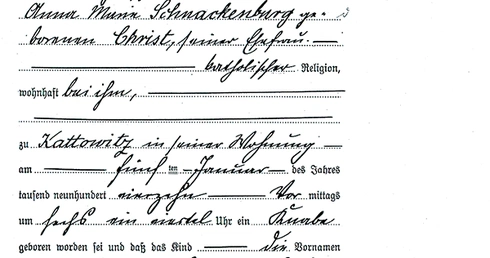 Anna Marie Schnackenburg ge=
borenen Christ, seiner Ehefrau.
katholischer Religion,
wohnhaft bei ihm,
zu Kattowitz in seiner Wohnung
am fünf ten Januar des Jahres
tausend neunhundert vierzehn Vor mittags
um sechs ein viertel Uhr ein Knabe
geboren worden sei und daß das Kind die Vornamen